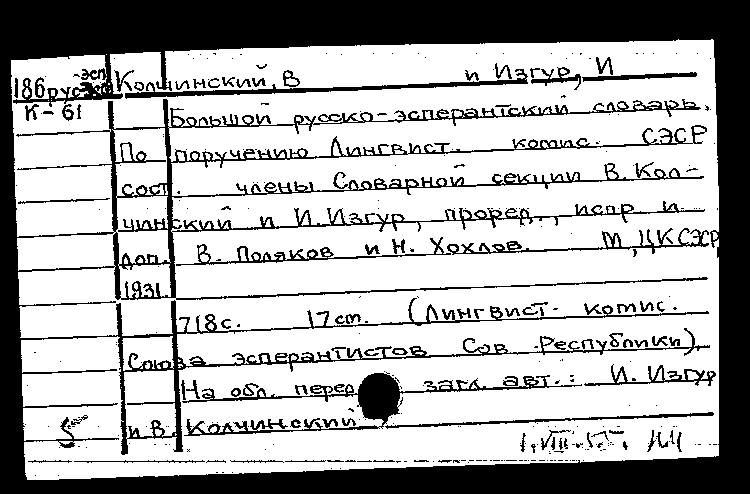 186рус-эсп Колчинский, В и Изгур, И
К-61
Большой русско-эсперантский словарь.
По поручению Лингвист. комис. СЭСР
сост. члены Словарной секции В. Кол-
чинский и И. Изгур, проред., испр и
доп. В. Поляков и Н. Хохлов. М, ЦК СЭСР,
1931.
718с. 17см. (Лингвист. комис.
Союза эсперантистов Сов Республики).
На обл. перед загл. авт.: И. Изгур
и В. Колчинский
5